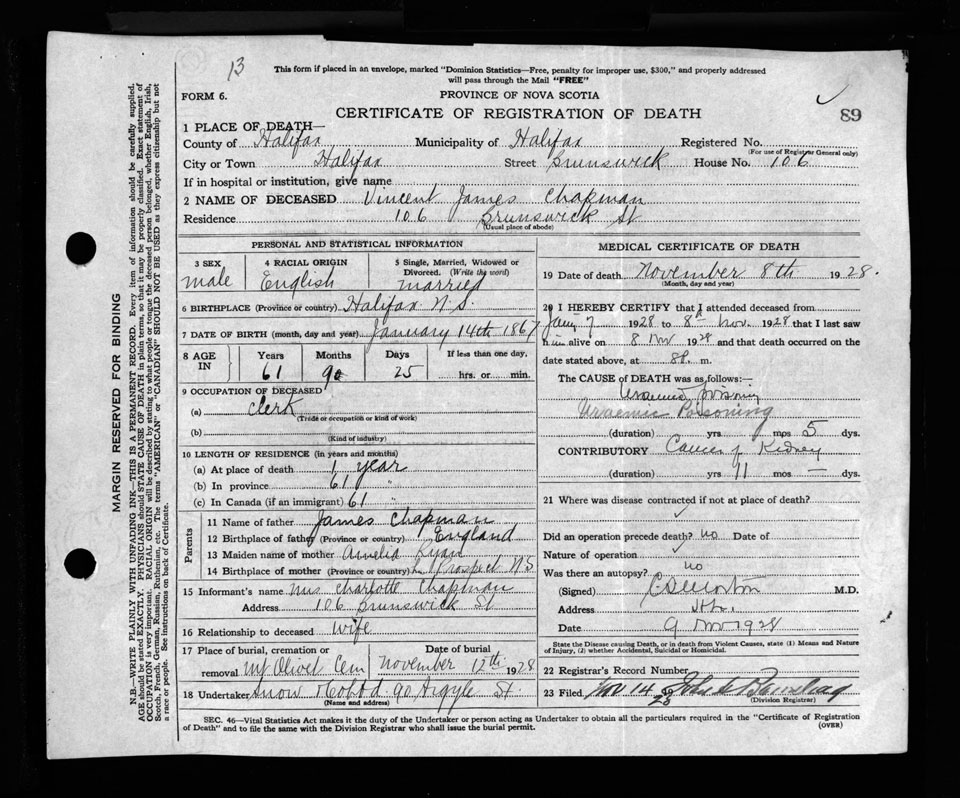 13
This form if placed in an envelope, marked "Dominion Statistics—Free, penalty for improper use, $300," and properly addressed
will pass through the Mail "FREE"
FORM 6.
PROVINCE OF NOVA SCOTIA
CERTIFICATE OF REGISTRATION OF DEATH
89
1 PLACE OF DEATH—
County of Halifax Municipality of Halifax Registered No.
(For use of Registrar General only)
City or Town Halifax Street Brunswick House No. 106
If in hospital or institution, give name
2 NAME OF DECEASED Vincent James Chapman
Residence 106 Brunswick St
(Usual place of abode)
PERSONAL AND STATISTICAL INFORMATION
3 SEX 4 RACIAL ORIGIN 5 Single, Married, Widowed or
Divorced. (Write the word)
male English married
6 BIRTHPLACE (Province or country) Halifax N.S.
7 DATE OF BIRTH (month, day and year) January 14th 1867
8 AGE IN Years Months Days If less than one day,
61 9 25 hrs. or min.
9 OCCUPATION OF DECEASED
(a) Clerk
(Trade or occupation or kind of work)
(b)
(Kind of industry)
10 LENGTH OF RESIDENCE (in years and months)
(a) At place of death 1 year
(b) In province 61 "
(c) In Canada (if an immigrant) 61 "
Parents
11 Name of father James Chapman
12 Birthplace of father (Province or country) England
13 Maiden name of mother Amelia Ryan
14 Birthplace of mother (Province or country) Prospect NS
15 Informant's name Mrs Charlotte Chapman
Address 106 Brunswick St
16 Relationship to deceased wife
17 Place of burial, cremation or Date of burial
removal Mt Olivet Cem November 12th 1928
18 Undertaker Snow & Co Ltd 90 Argyle St
(Name and address)
MEDICAL CERTIFICATE OF DEATH
19 Date of death November 8th 1928.
(Month, day and year)
20 I HEREBY CERTIFY that I attended deceased from
7 1928 to 8th Nov. 1928 that I last saw
him alive on 8 Nov 1928 and that death occurred on the
date stated above, at 8 P. m.
The CAUSE of DEATH was as follows:—
Uraemic Poisoning
Uraemic Poisoning
(duration) yrs mos 5 dys.
CONTRIBUTORY Cancer of Kidney
(duration) yrs 11 mos — dys.
21 Where was disease contracted if not at place of death?
Did an operation precede death? no Date of
Nature of operation
Was there an autopsy? no
(Signed) C D Morton M.D.
Address
Date 9 Nov 1928
State the Disease causing Death, or in death from Violent Causes, state (1) Means and Nature
of Injury, (2) whether Accidental, Suicidal or Homicidal.
22 Registrar's Record Number
23 Filed Nov 14 1928
(Division Registrar)
SEC. 46—Vital Statistics Act makes it the duty of the Undertaker or person acting as Undertaker to obtain all the particulars required in the "Certificate of Registration
of Death" and to file the same with the Division Registrar who shall issue the burial permit.
(OVER)
MARGIN RESERVED FOR BINDING
N.B.—WRITE PLAINLY WITH UNFADING INK—THIS IS A PERMANENT RECORD. Every item of information should be carefully supplied.
AGE should be stated EXACTLY. PHYSICIANS should STATE CAUSE OF DEATH in plain terms, so that it may be properly classified. Exact statement of
OCCUPATION is very important. RACIAL ORIGIN will be described by stating to what people or tongue the deceased person belonged, whether English, Irish,
Scotch, French, German, Russian, Ruthenian, etc. The terms "AMERICAN" or "CANADIAN" SHOULD NOT BE USED as they express citizenship but not
a race or people. See instructions on back of Certificate.